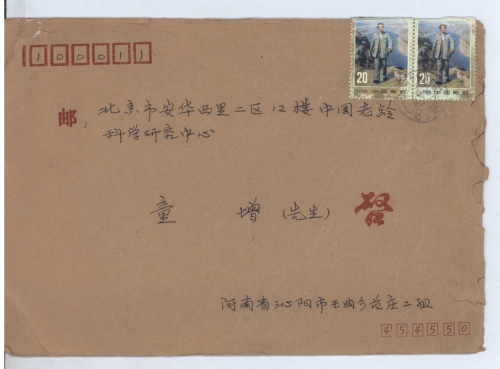 100011
20 中国邮政
20 中国邮政
邮:
北京市安华西里二区12楼中国老龄
科学研究中心
童增(先生)启
河南省沁阳市王曲乡
庄二组
454550